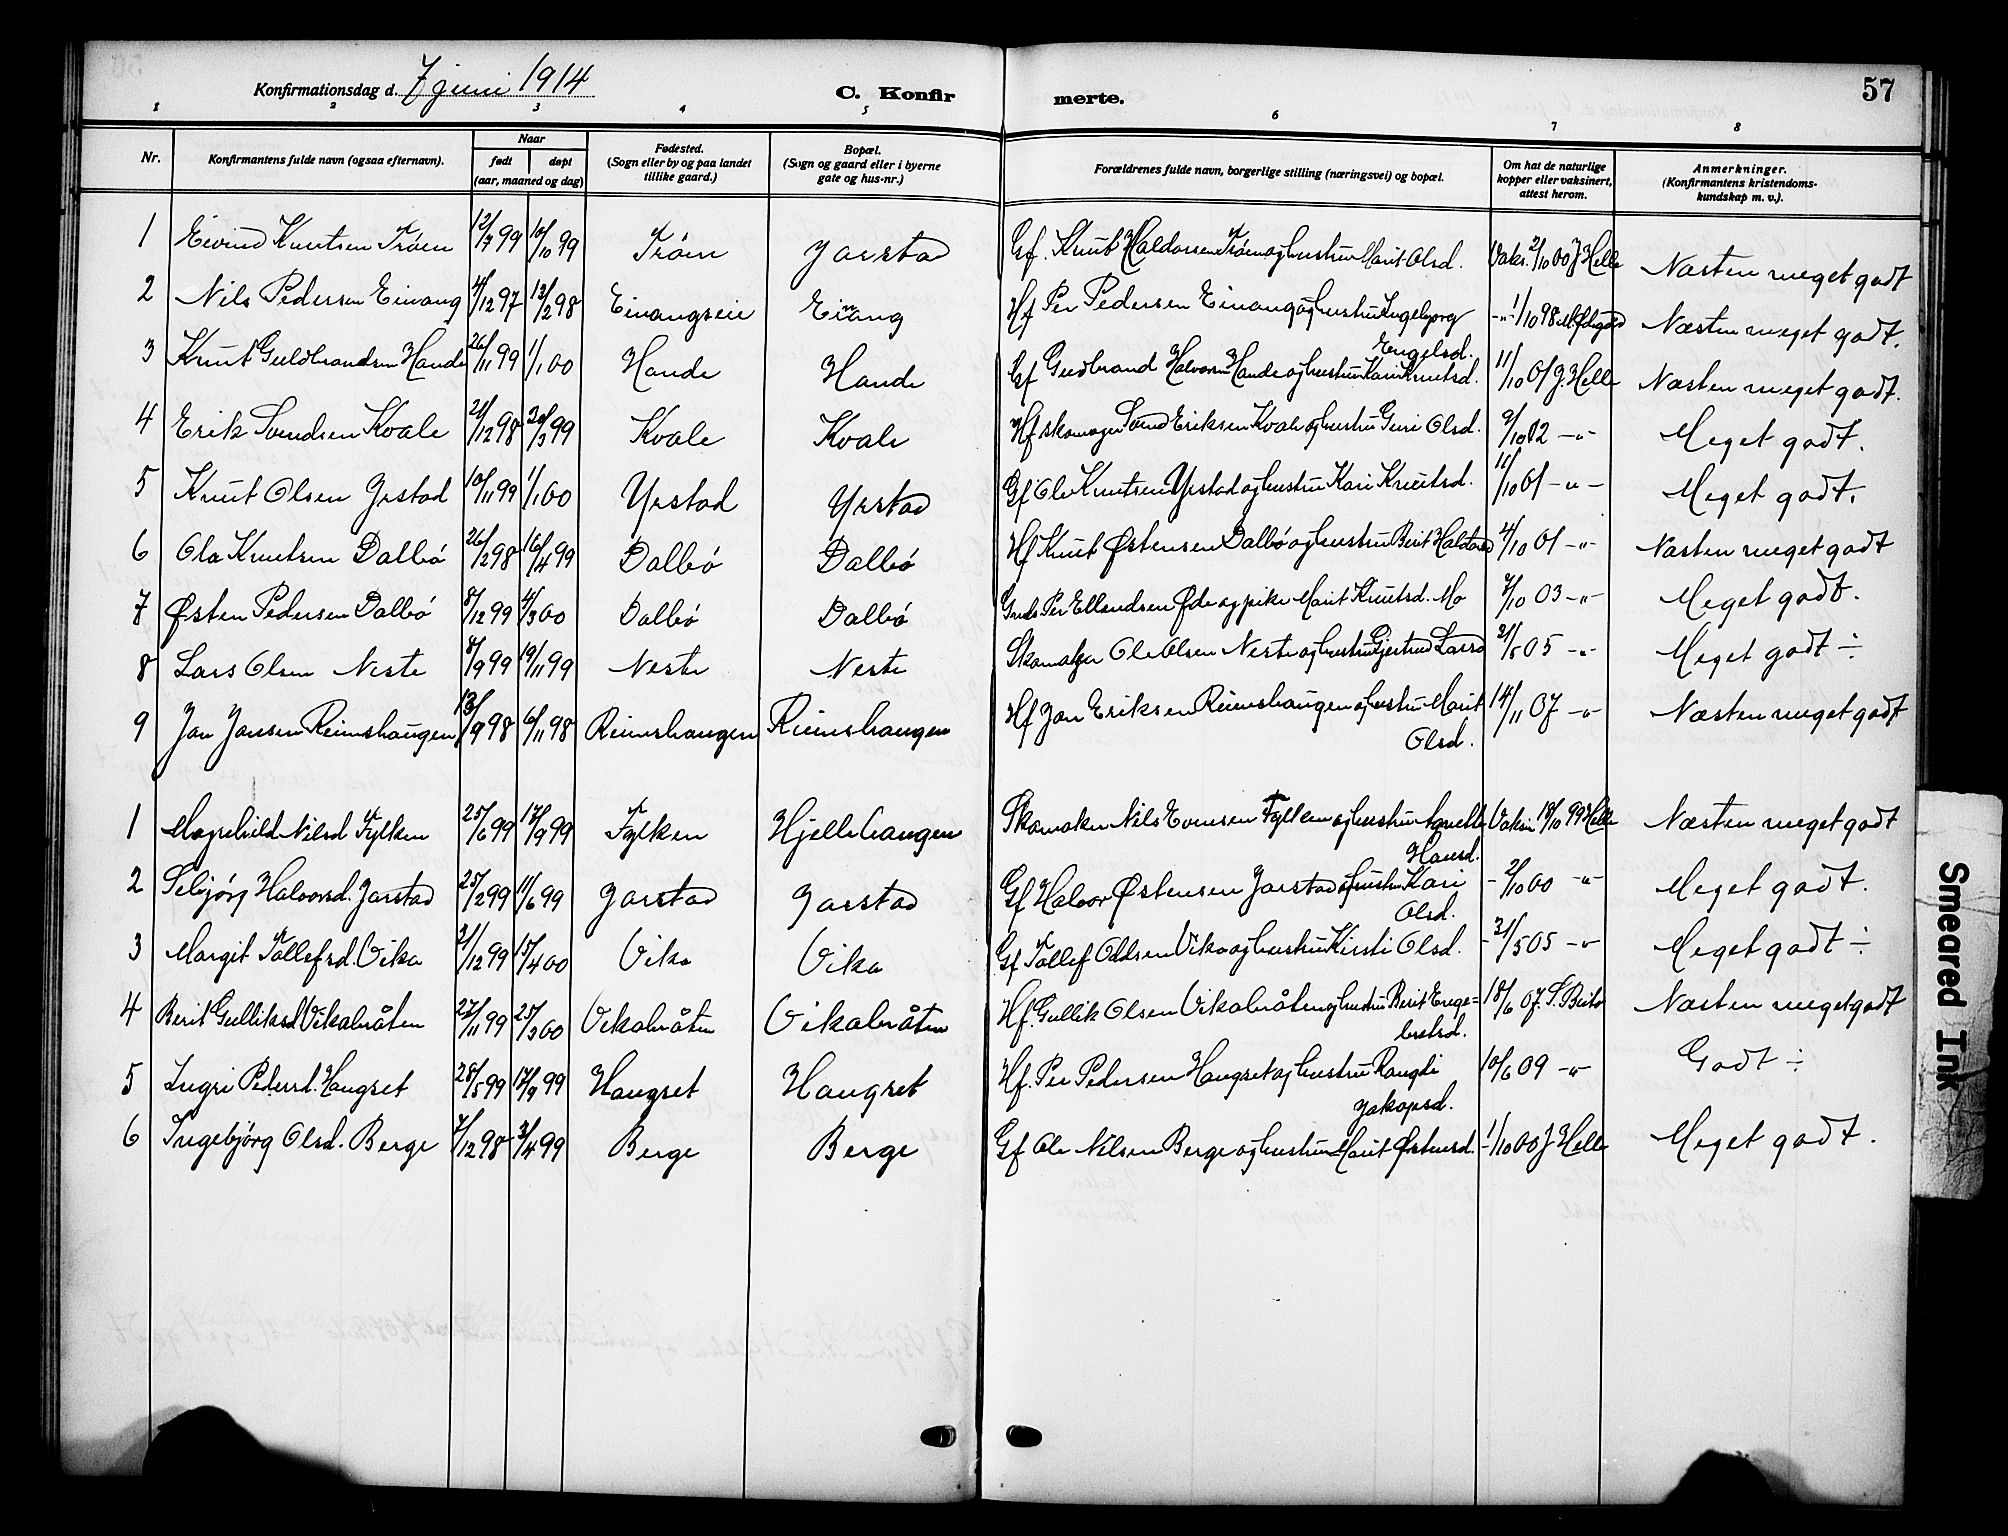 Konfirmationsdag d. 7 juni 1914
C. Konfir merte. 57
1 2 3 4 5 6 7 8
Nr. Konfirmantens fulde navn (ogsaa efternavn). Naar født døpt (aar, maaned og dag) Fødested. (Sogn eller by og paa landet tillike gaard.) Bopæl. (Sogn og gaard eller i byerne gate og hus-nr.) Forældrenes fulde navn, borgerlige stilling (næringsvei) og bopæl. Om hat de naturlige kopper eller vaksinert, attest herom. Anmerkninger. (Konfirmantens kristendomskundskap m. v.).
1 Eivind Knutsen Trøen 12/7 99 10/10 99 Trøen Jarstad Gf. Knut Haldorsen Trøen og hustru Marit Olsd. Vaks. 2/10 00 J Helle Næsten meget godt
2 Nils Pedersen Einang 4/12 97 13/2 98 Einangseie Einang Hf Per Pedersen Einang og hustru Ingebjørg Engelsd. -"- 1/10 98 Næsten meget godt.
3 Knut Guldbrandsen Hande 26/11 99 1/1 00 Hande Hande Gf Gudbrand Halvorsen Hande og hustru Kari Knutsd. 11/10 01 J. Helle Næsten meget godt.
4 Erik Svendsen Kvale 21/12 98 30/3 99 Kvale Kvale Hf skomager Svend Eriksen Kvale og hustru Guri Olsd. 9/10 02 -"- Meget godt.
5 Knut Olsen Yrstad 10/11 99 1/1 00 Yrstad Yrstad Gf Ola Knutsen Yrstad og hustru Kari Knutsd. 11/10 01 -"- Meget godt.
6 Ola Knutsen Dalbø 26/2 98 16/4 99 Dalbø Dalbø Hf Knut Østensen Dalbø og hustru Berit Haldorsd 4/10 01 -"- Næsten meget godt
7 Østen Pedersen Dalbø 8/12 99 4/3 00 Dalbø Dalbø Per Ellendsen Øde og pike Marit Knutsd. Mo 7/10 03 -"- Meget godt.
8 Lars Olsen Neste 8/9 99 19/11 99 Neste Neste Skomaker Ole Olsen Neste og hustru Gjertrud Larsd 31/5 05 -"- Meget godt ÷
9 Jan Jansen Reimshaugen 13/9 98 6/11 98 Reimshaugen Reimshaugen Hf Jan Eriksen Reimshaugen og hustru Marit Olsd. 14/11 07 -"- Næsten meget godt
1 Magnhild Nilsd Fylken 25/6 99 17/9 99 Fylken Hjellehaugen Skomaker Nils Evensen Fylken og hustru Hansd. Vaksi. 18/10 99 Helle Næsten meget godt
2 Selbjørg Halvorsd. Jarstad 25/2 99 11/6 99 Jarstad Jarstad Gf Halvor Østensen Jarstad og hustru Kari Olsd. - 2/10 00 -"- Meget godt.
3 Margit Tollefsd. Vika 31/12 99 15/4 00 Vika Vika Gf Tollef Oddsen Vika og hustru Kirsti Olsd. - 31/5 05 -"- Meget godt ÷
4 Berit Gulliksd Vikabråten 27/11 99 25/3 00 Vikabråten Vikabråten Hf. Gullik Olsen Vikabråten og hustru Berit Engebretsd. 18/6 07. S. Beito Næsten meget godt
5 Ingri Pedersd. Haugset 28/5 99 17/9 99 Haugset Haugset Hf. Per Pedersen Haugset og hustru Rangdi Jakopsd. 10/6 09 -"- Godt ÷
6 Ingebjørg Olsd. Berge 7/12 98 3/4 99 Berge Berge Gf Ole Nilsen Berge og hustru Marit Østensd. 1/10 00 J Helle Meget godt.
Smeared Ink